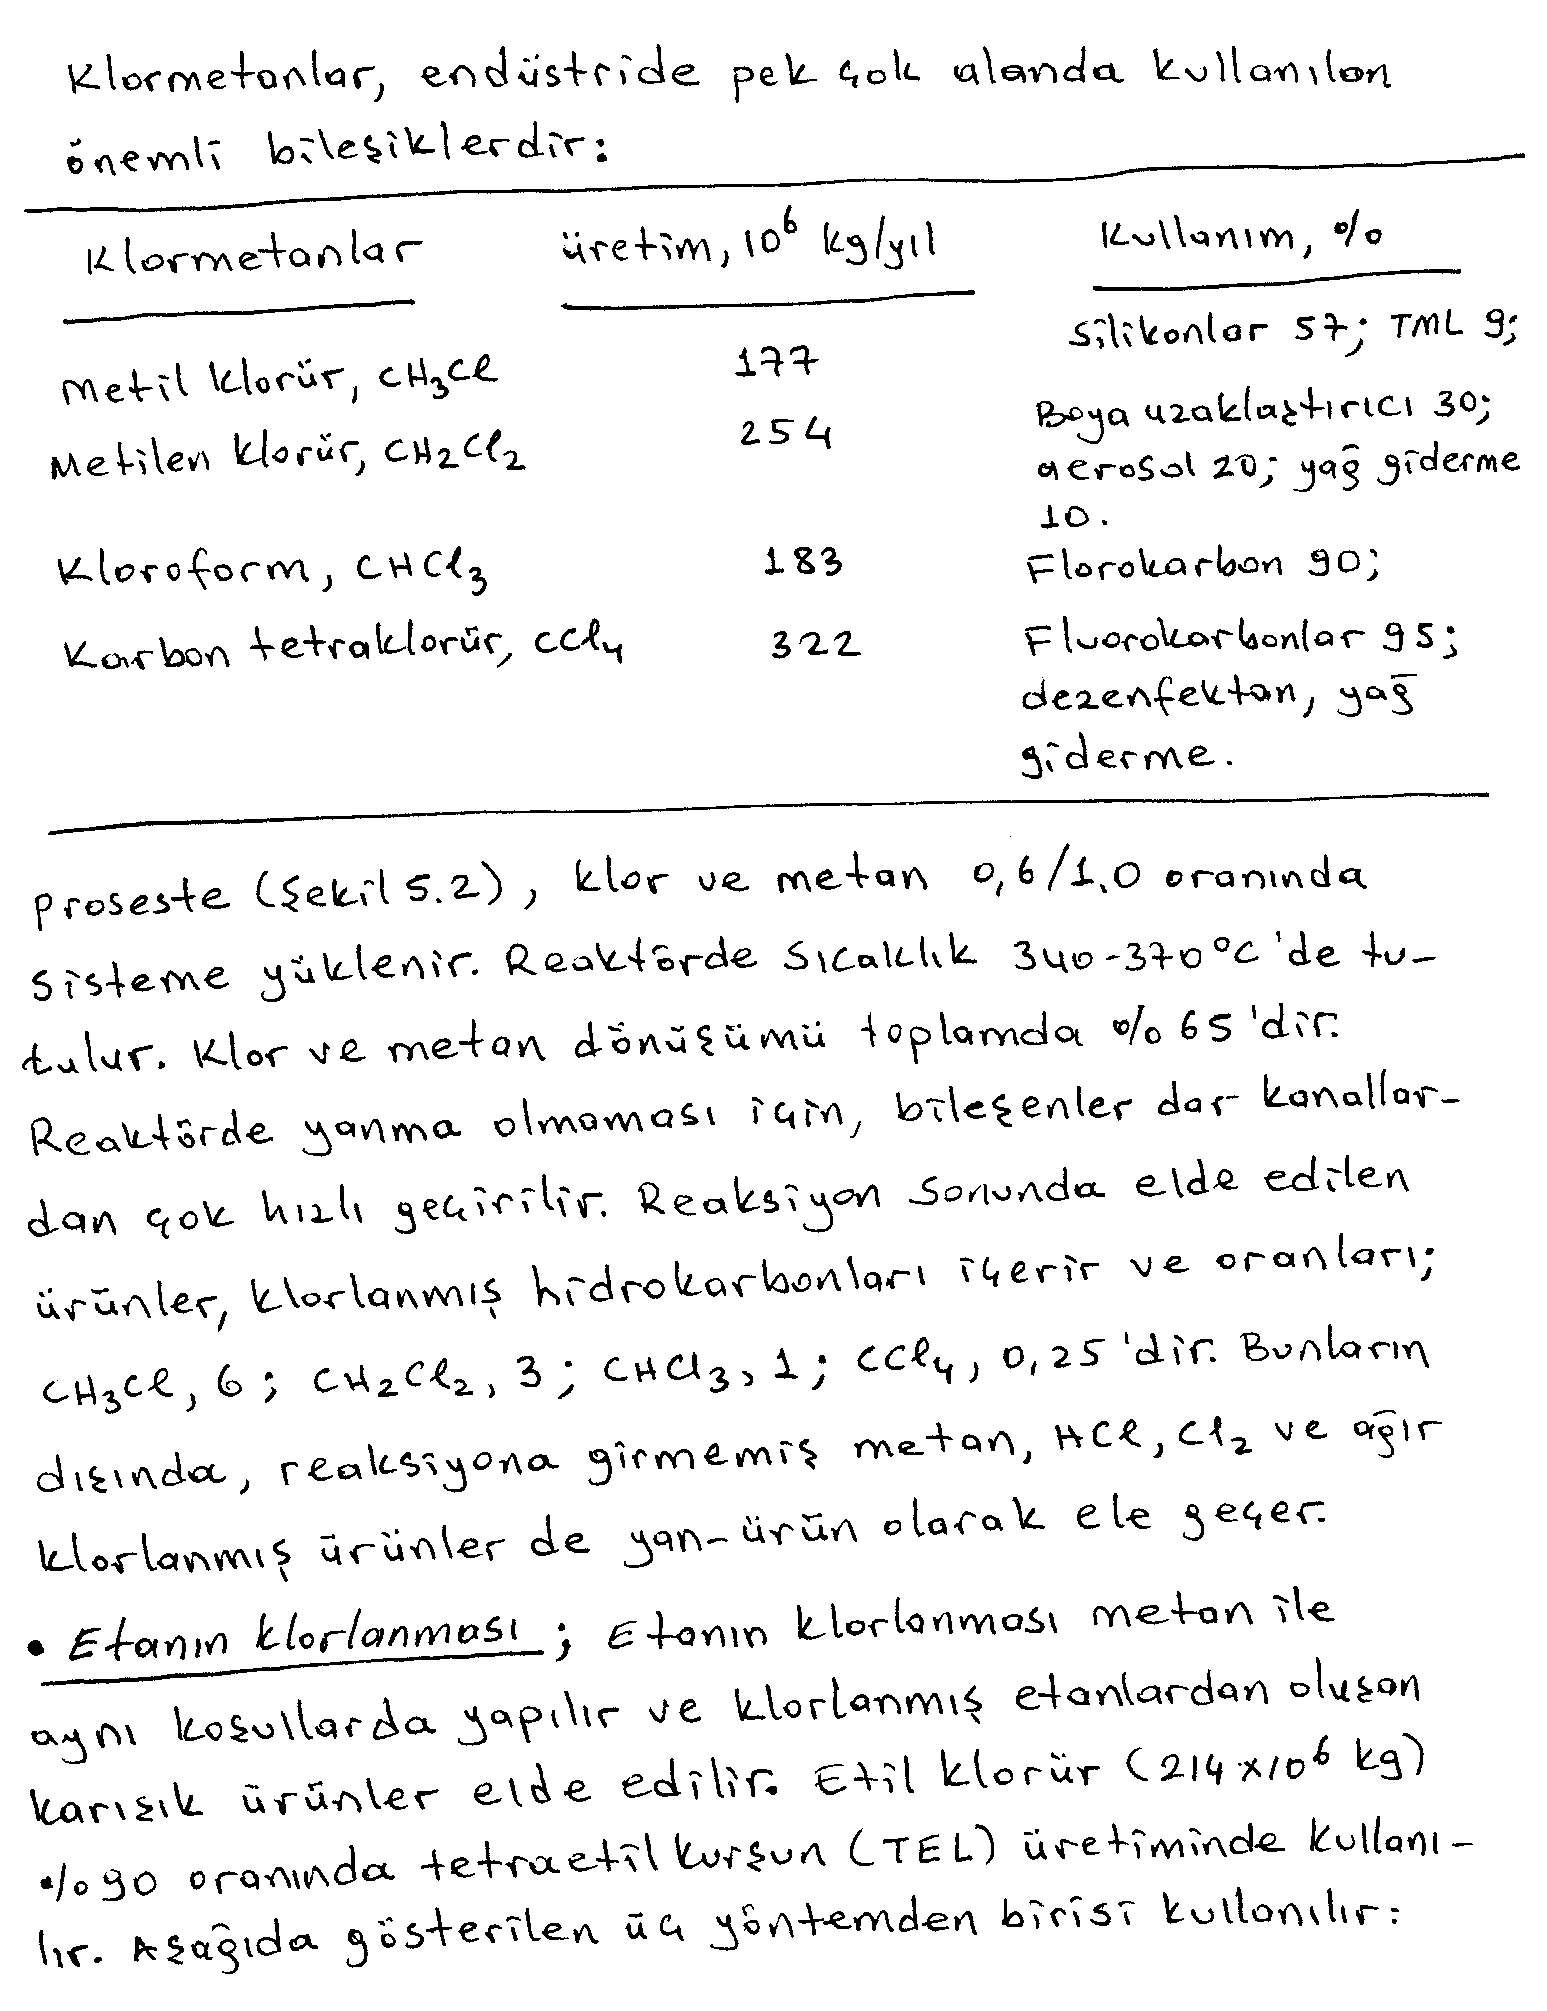 Klormetanlar, endüstride pek çok alanda kullanılan
önemli bileşiklerdir:
Klormetanlar üretim, 10⁶ kg/yıl Kullanım, %
Metil klorür, CH₃Cl 177 Silikonlar 57; TML 9;
Metilen klorür, CH₂Cl₂ 254 Boya uzaklaştırıcı 30;
aerosol 20; yağ giderme
10.
Kloroform, CHCl₃ 183 Florokarbon 90;
Karbon tetraklorür, CCl₄ 322 Fluorokarbonlar 95;
dezenfektan, yağ
giderme.
Proseste (Şekil 5.2), klor ve metan 0,6/1,0 oranında
sisteme yüklenir. Reaktörde sıcaklık 340-370°C'de tu-
tulur. Klor ve metan dönüşümü toplamda %65'dir.
Reaktörde yanma olmaması için, bileşenler dar kanallar-
dan çok hızlı geçirilir. Reaksiyon sonunda elde edilen
ürünler, klorlanmış hidrokarbonları içerir ve oranları;
CH₃Cl, 6; CH₂Cl₂, 3; CHCl₃, 1; CCl₄, 0,25'dir. Bunların
dışında, reaksiyona girmemiş metan, HCl, Cl₂ ve ağır
klorlanmış ürünler de yan-ürün olarak ele geçer.
• Etanın klorlanması; Etanın klorlanması metan ile
aynı koşullarda yapılır ve klorlanmış etanlardan oluşan
karışık ürünler elde edilir. Etil klorür (214x10⁶ kg)
%90 oranında tetraetil kurşun (TEL) üretiminde kullanı-
lır. Aşağıda gösterilen üç yöntemden birisi kullanılır: